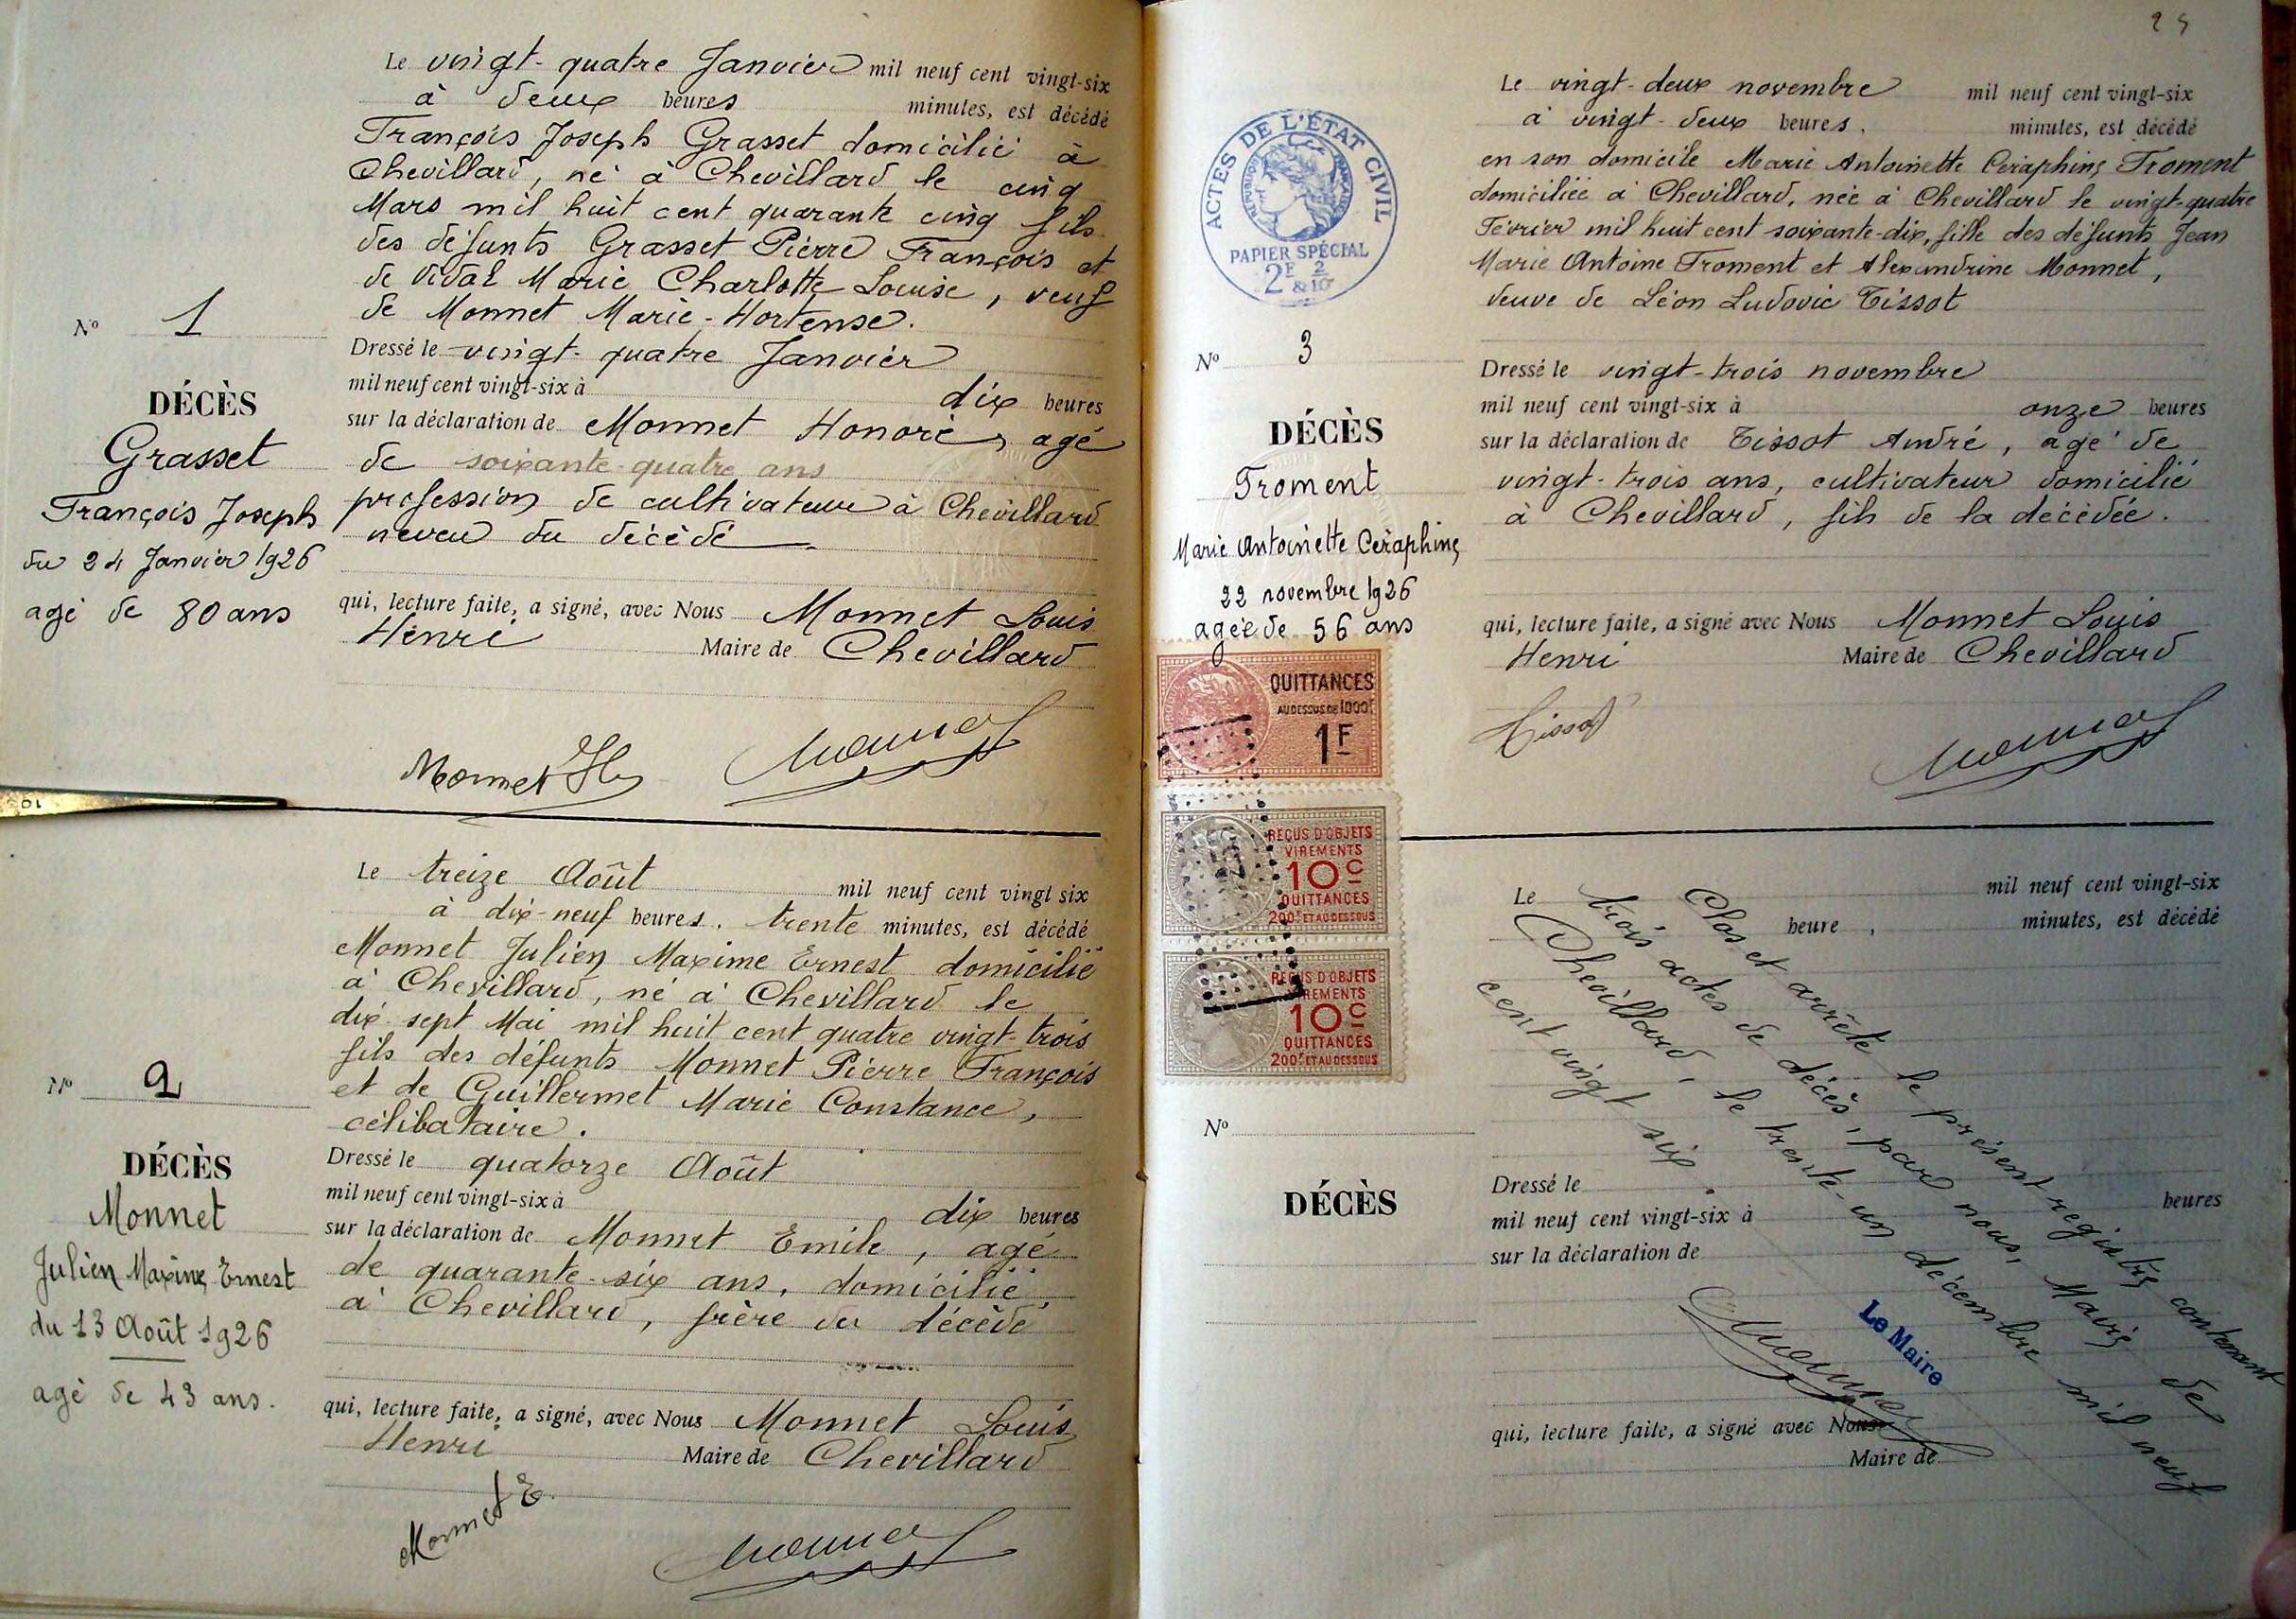 Le vingt-quatre Janvier mil neuf cent vingt-six
à deux heures minutes, est décédé
François Joseph Grasset domicilié à
Chevillard, né à Chevillard le cinq
Mars mil huit cent quarante cinq fils
des défunts Grasset Pierre François et
de Vidal Marie Charlotte Louise, veuf
de Monnet Marie-Hortense.
Nº 1
Dressé le vingt-quatre Janvier
mil neuf cent vingt-six à dix heures
sur la déclaration de Monnet Honoré, agé
de soixante-quatre ans
profession de cultivateur à Chevillard
neveu du décédé
DÉCÈS
Grasset
François Joseph
du 24 Janvier 1926
agé de 80 ans
qui, lecture faite, a signé, avec Nous Monnet Louis
Henri Maire de Chevillard
Monnet H
Monnet
Le treize Août mil neuf cent vingt six
à dix-neuf heures. trente minutes, est décédé
Monnet Julien Maxime Ernest domicilié
à Chevillard, né à Chevillard le
dix sept Mai mil huit cent quatre vingt-trois
fils des défunts Monnet Pierre François
et de Guillermet Marie Constance,
célibataire.
Nº 2
Dressé le quatorze Août
mil neuf cent vingt-six à dix heures
sur la déclaration de Monnet Emile, agé
de quarante-six ans, domicilié
à Chevillard, frère du décédé
DÉCÈS
Monnet
Julien Maxime Ernest
du 13 Août 1926
agé de 43 ans.
qui, lecture faite, a signé, avec Nous Monnet Louis
Henri Maire de Chevillard
Monnet E.
Monnet
ACTES DE L'ÉTAT CIVIL
RÉPUBLIQUE FRANÇAISE
PAPIER SPÉCIAL
2F & 2/10
Le vingt-deux novembre mil neuf cent vingt-six
à vingt-deux heures. minutes, est décédé
en son domicile Marie Antoinette Ceraphine Froment
domiciliée à Chevillard, née à Chevillard le vingt-quatre
Février mil huit cent soixante-dix, fille des défunts Jean
Marie Antoine Froment et Alexandrine Monnet,
veuve de Léon Ludovic Tissot
Nº 3
Dressé le vingt-trois novembre
mil neuf cent vingt-six à onze heures
sur la déclaration de Tissot André, agé de
vingt-trois ans, cultivateur domicilié
à Chevillard, fils de la décédée.
DÉCÈS
Froment
Marie Antoinette Ceraphine
22 novembre 1926
agée de 56 ans
qui, lecture faite, a signé avec Nous Monnet Louis
Henri Maire de Chevillard
Tissot
Monnet
QUITTANCES
AU DESSUS DE 1000F
1F
REÇUS D'OBJETS
VIREMENTS
10C
QUITTANCES
200F ET AU DESSOUS
REÇUS D'OBJETS
VIREMENTS
10C
QUITTANCES
200F ET AU DESSOUS
Le mil neuf cent vingt-six
heure, minutes, est décédé
Clos et arrêté le présent registre contenant
trois actes de décès, par nous, Maire de
Chevillard, le trente-un décembre mil neuf
cent vingt six.
Le Maire
Monnet
Nº
DÉCÈS
Dressé le
mil neuf cent vingt-six à heures
sur la déclaration de
qui, lecture faite, a signé avec Nous
Maire de